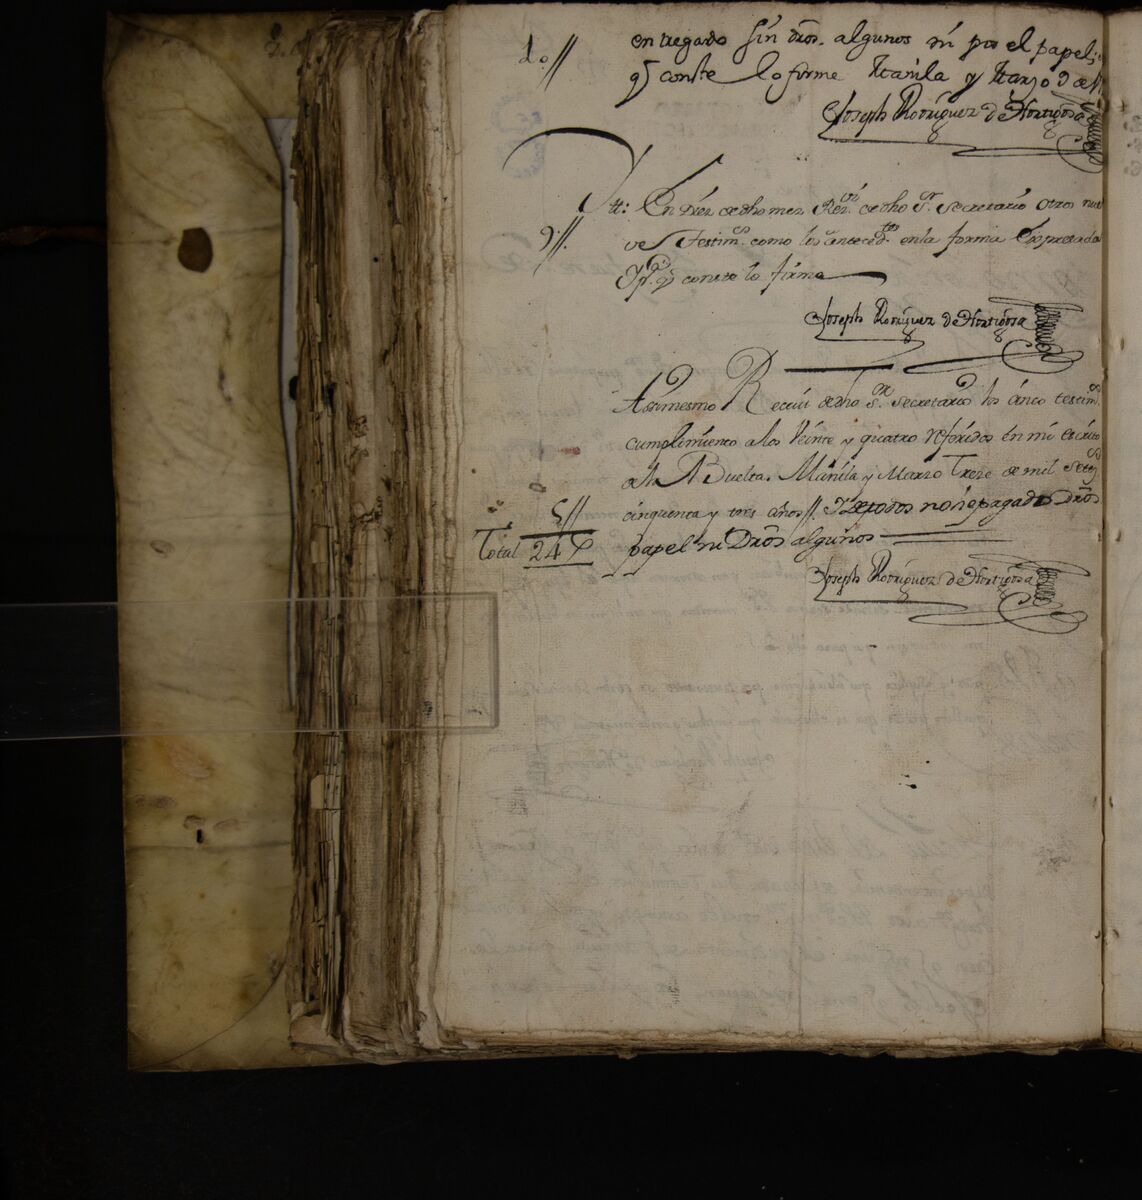 10//
entregado sin dros. algunos ni por el papel; y
q̃ conste lo firme Manila y Marzo 9 de
Joseph Rodriguez de Hortigosa
Itt: En diez de dho mes Resví. de dho Sr. Secretario otros nue
9//.
ve Testims. como los antecedtes. en la forma Expresada
Y pa. q̃ conste lo firmo
Joseph Rodriguez de Hortigosa
Assimesmo Recivi de dho Sr. Secretario los cinco testims.
cumplimiento a los Veinte y quatro referidos en mi escrito
de la Buelta. Manila y Marzo Treze de mil Setezs.
5//
cinquenta y tres años // Y de todos no he pagado Dros
Total 24
papel ni Dros algunos
Joseph Rodriguez de Hortigosa